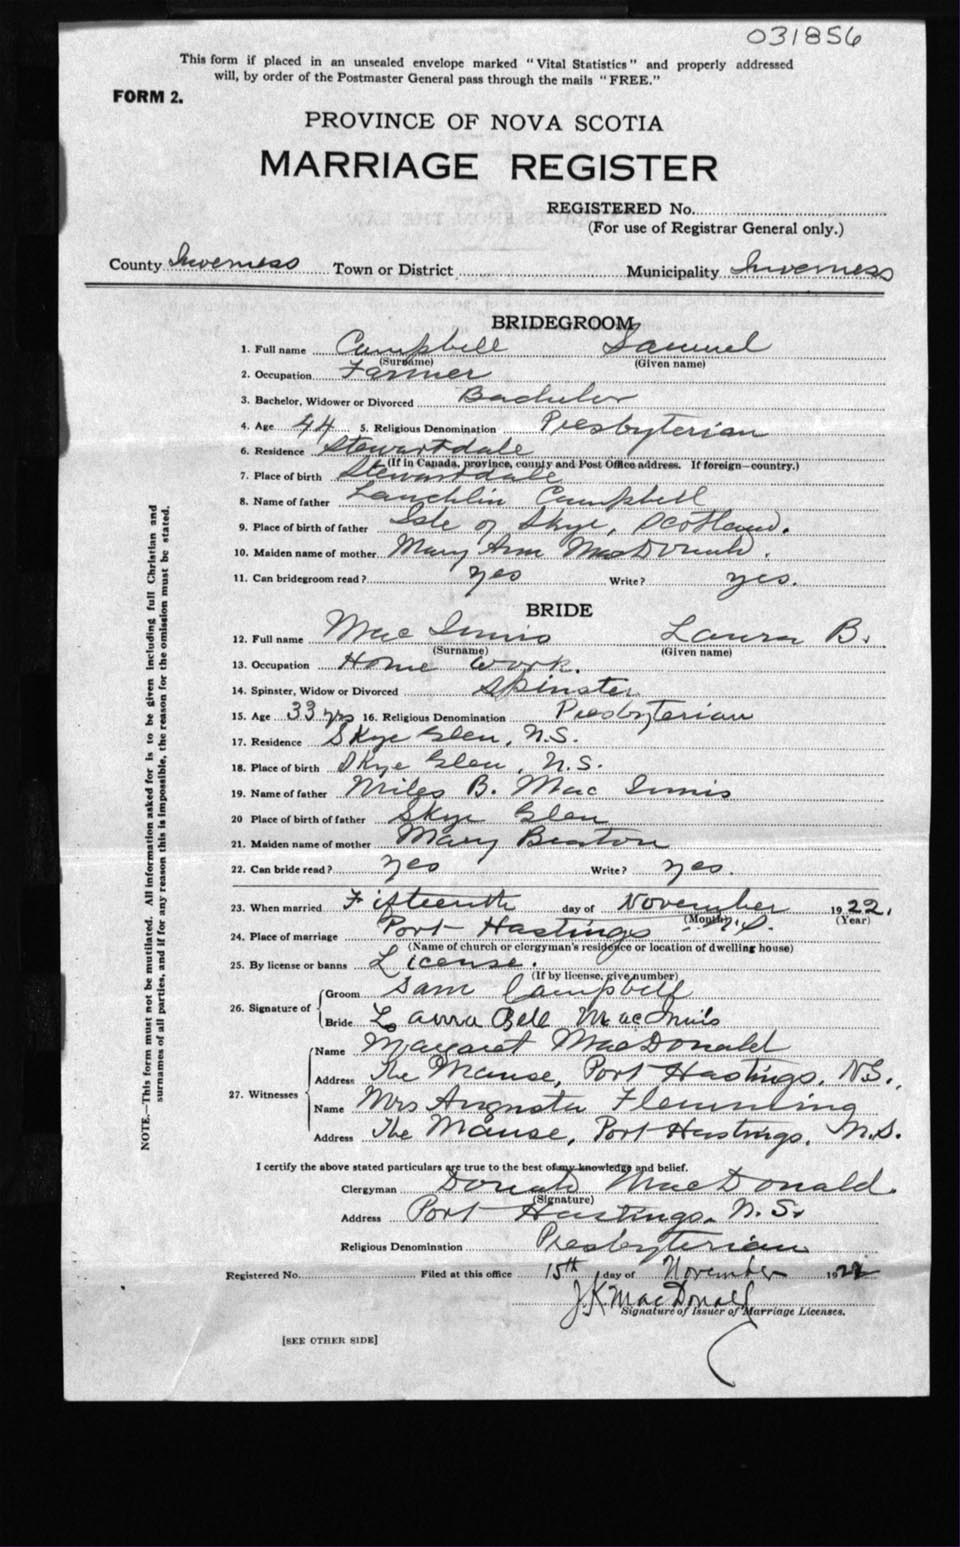 031856
This form if placed in an unsealed envelope marked "Vital Statistics" and properly addressed
will, by order of the Postmaster General pass through the mails "FREE."
FORM 2.
PROVINCE OF NOVA SCOTIA
MARRIAGE REGISTER
REGISTERED No.
(For use of Registrar General only.)
County Inverness Town or District Municipality Inverness
BRIDEGROOM
1. Full name Campbell Samuel
(Surname) (Given name)
2. Occupation Farmer
3. Bachelor, Widower or Divorced Bachelor
4. Age 44 5. Religious Denomination Presbyterian
6. Residence Stewartdale
(If in Canada, province, county and Post Office address. If foreign—country.)
7. Place of birth Stewartdale
8. Name of father Lauchlin Campbell
9. Place of birth of father Isle of Skye, Scotland.
10. Maiden name of mother Mary Ann MacDonald.
11. Can bridegroom read? yes Write? yes.
BRIDE
12. Full name Mac Innis Laura B.
(Surname) (Given name)
13. Occupation Home work.
14. Spinster, Widow or Divorced Spinster
15. Age 33 yrs 16. Religious Denomination Presbyterian
17. Residence Skye Glen, N.S.
18. Place of birth Skye Glen, N.S.
19. Name of father Miles B. Mac Innis
20 Place of birth of father Skye Glen
21. Maiden name of mother Mary Beaton
22. Can bride read? yes Write? yes.
23. When married Fifteenth day of November 1922.
(Month) (Year)
24. Place of marriage Port Hastings N.S.
(Name of church or clergyman's residence or location of dwelling house)
25. By license or banns License.
(If by license, give number)
26. Signature of Groom Sam Campbell
Bride Laura Bell MacInnis
27. Witnesses Name Margaret MacDonald
Address The Manse, Port Hastings, N.S.
Name Mrs Augusta Flemming
Address The Manse, Port Hastings, N.S.
I certify the above stated particulars are true to the best of my knowledge and belief.
Clergyman Donald MacDonald.
(Signature)
Address Port Hastings, N.S.
Religious Denomination Presbyterian
Registered No. Filed at this office 15th day of November 1922
J. K. MacDonald
Signature of Issuer of Marriage Licenses.
[SEE OTHER SIDE]
NOTE.—This form must not be mutilated. All information asked for is to be given including full Christian and
surnames of all parties, and if for any reason this is impossible, the reason for the omission must be stated.